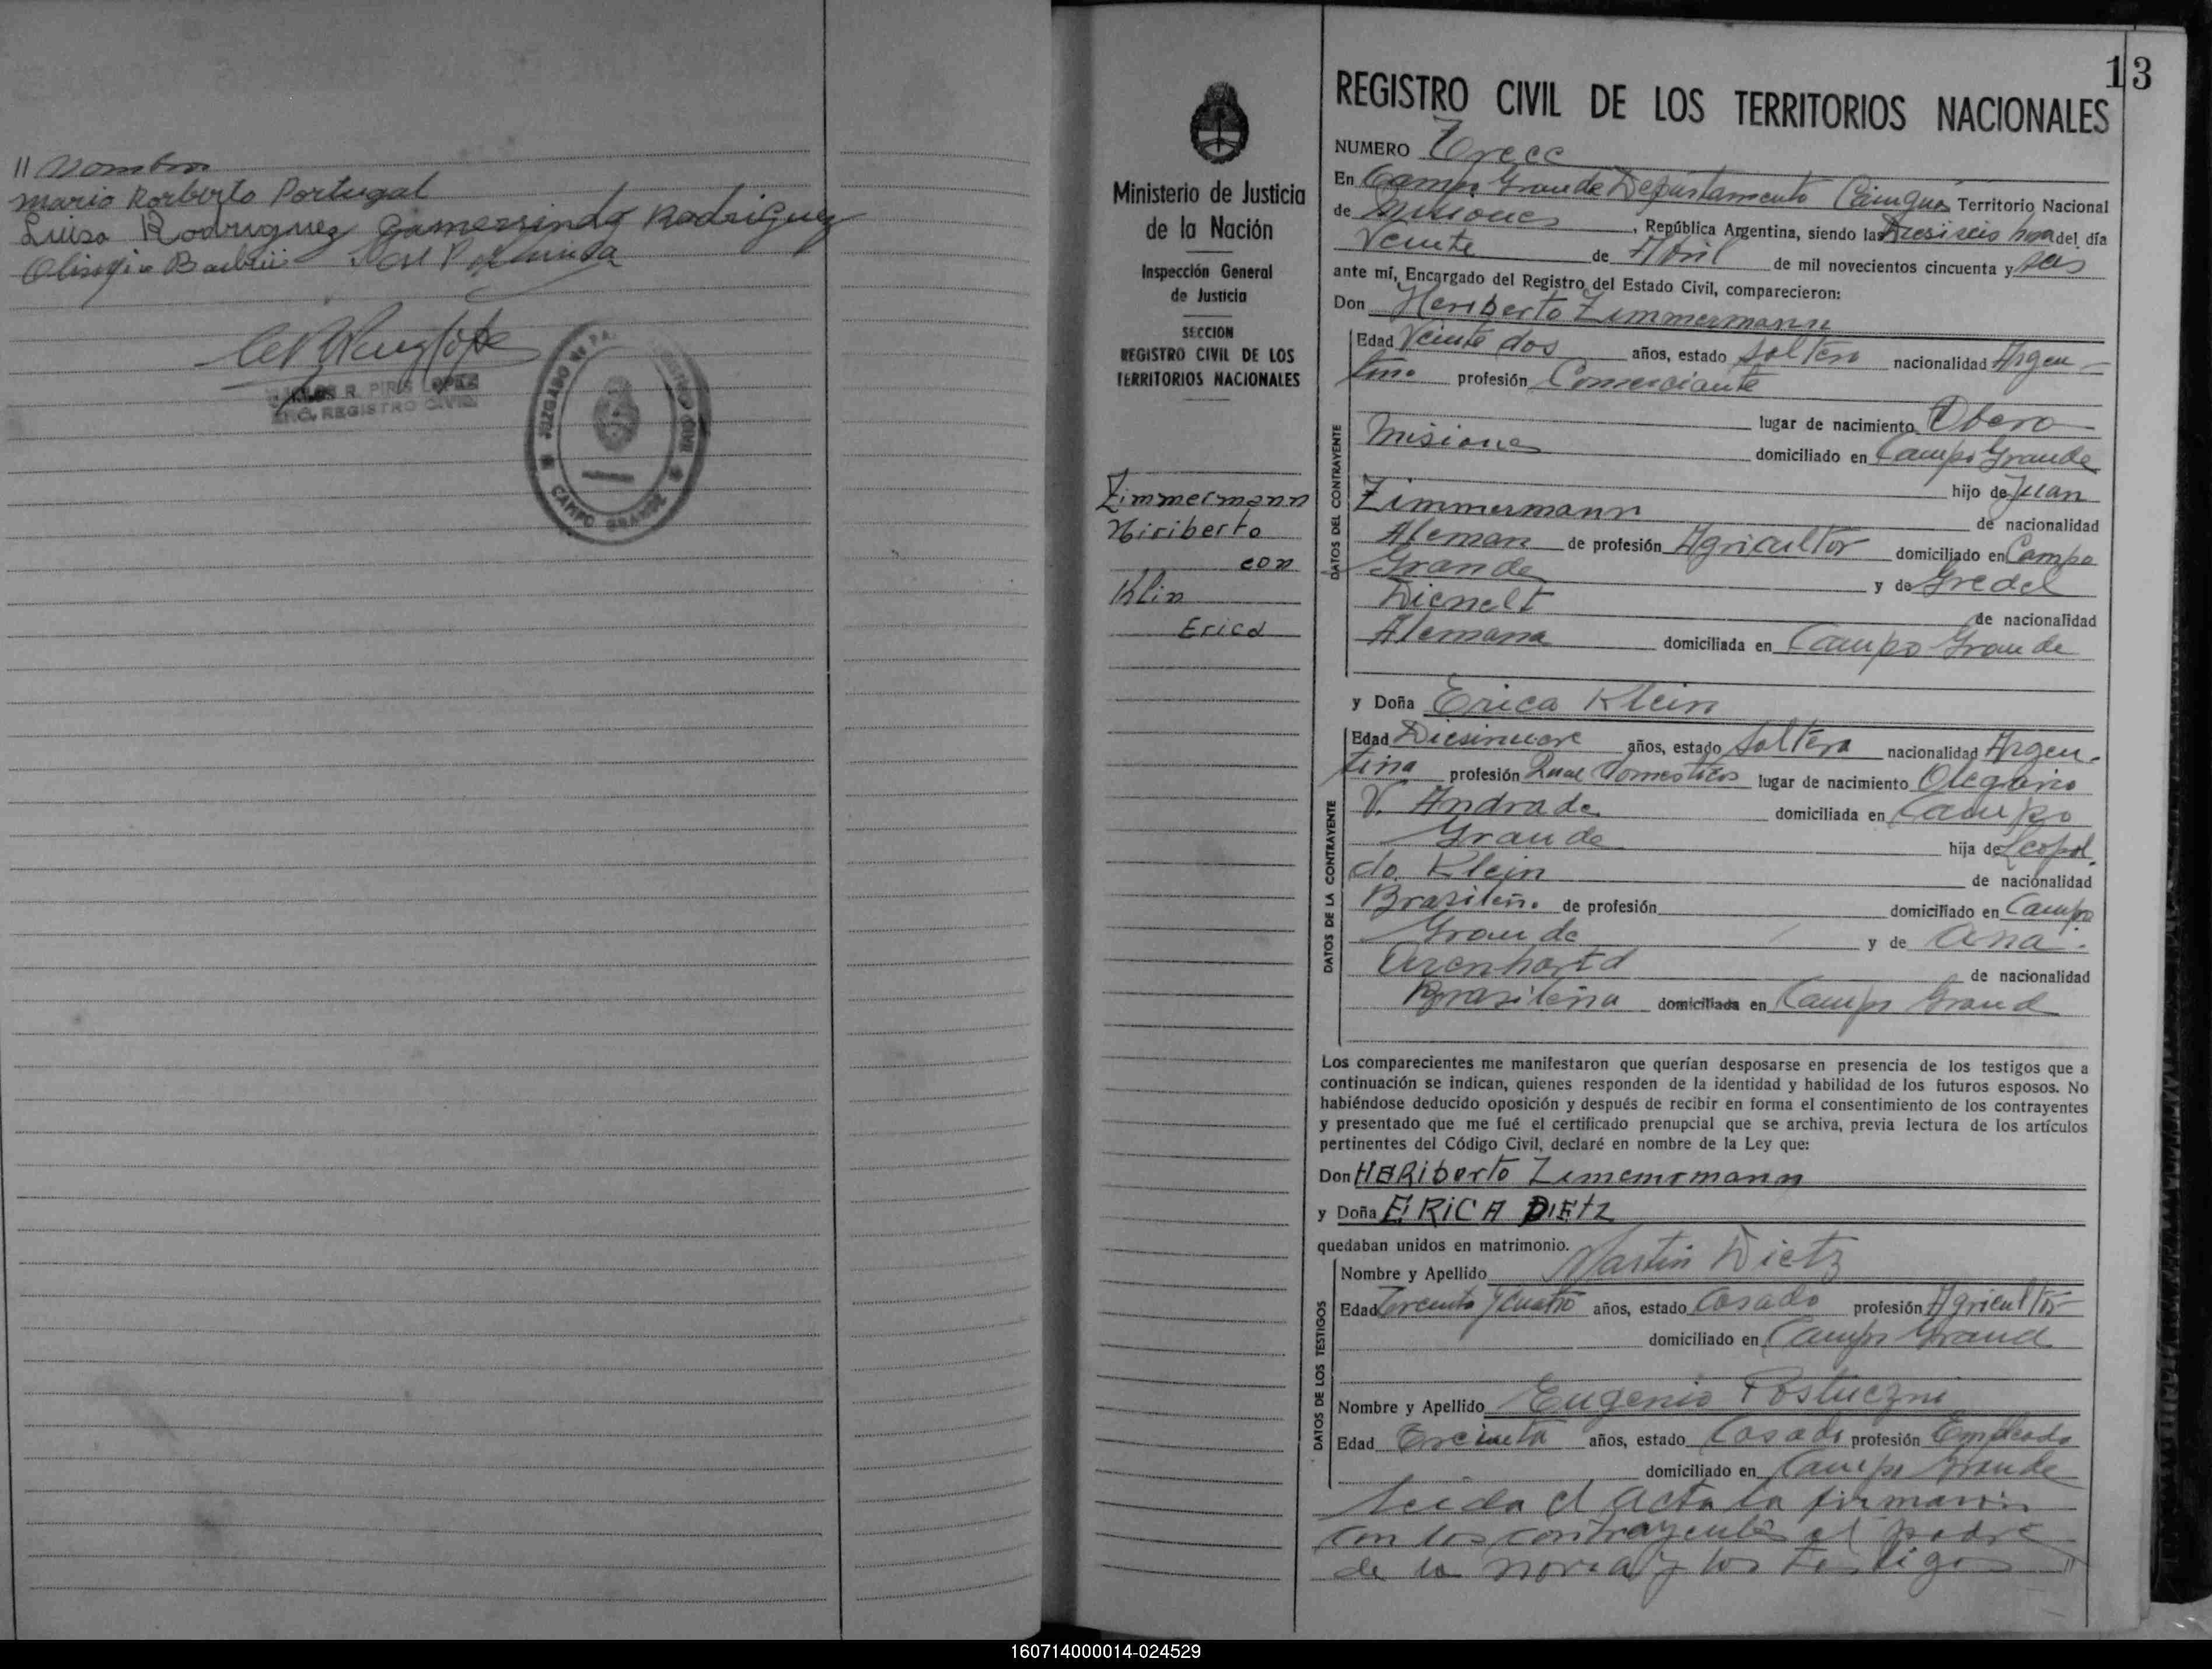 II nombre
Mario Norberto Portugal
Luisa Rodriguez Gumersindo Rodriguez
CARLOS R. PIRIS LOPEZ
ENC. REGISTRO CIVIL
JUZGADO DE PA
CIVIL
CAMPO GRANDE
13
Ministerio de Justicia
de la Nación
Inspección General
de Justicia
SECCION
REGISTRO CIVIL DE LOS
TERRITORIOS NACIONALES
Zimmermann
Hiriberto
con
Klin
Erica
REGISTRO CIVIL DE LOS TERRITORIOS NACIONALES
NUMERO Trece
En Campo Grande Departamento Cainguas Territorio Nacional
de Misiones, República Argentina, siendo las Diesiseis hora del día
Veinte de Abril de mil novecientos cincuenta y seis
ante mí, Encargado del Registro del Estado Civil, comparecieron:
Don Heriberto Zimmermann
DATOS DEL CONTRAYENTE
Edad Veinte dos años, estado soltero nacionalidad Argen-
tino profesión Comerciante
lugar de nacimiento Obera
Misiones domiciliado en Campo Grande
hijo de Juan
Zimmermann de nacionalidad
Aleman de profesión Agricultor domiciliado en Campo
Grande y de Gredel
Dienelt de nacionalidad
Alemana domiciliada en Campo Grande
y Doña Erica Klein
DATOS DE LA CONTRAYENTE
Edad Diesinueve años, estado soltera nacionalidad Argen-
tina profesión Domesticos lugar de nacimiento Olegario
V. Andrade domiciliada en Campo
Grande hija de Leopol
do Klein de nacionalidad
Brasileño de profesión domiciliado en Campo
Grande y de Ana
de nacionalidad
Brasileña domiciliada en Campo Grand
Los comparecientes me manifestaron que querían desposarse en presencia de los testigos que a
continuación se indican, quienes responden de la identidad y habilidad de los futuros esposos. No
habiéndose deducido oposición y después de recibir en forma el consentimiento de los contrayentes
y presentado que me fué el certificado prenupcial que se archiva, previa lectura de los artículos
pertinentes del Código Civil, declaré en nombre de la Ley que:
Don HERiberto Zimemrmann
y Doña ERICA DIETZ
quedaban unidos en matrimonio.
DATOS DE LOS TESTIGOS
Nombre y Apellido Martin Dietz
Edad Treinta y cuatro años, estado Casado profesión Agricultor
domiciliado en Campo Grand
Nombre y Apellido Eugenio Postuczni
Edad Treinta años, estado Casado profesión Empleado
domiciliado en Campo Grande
Leida el acta la firmaron
con los contrayentes el padre
de la novia y los testigos //
160714000014-024529